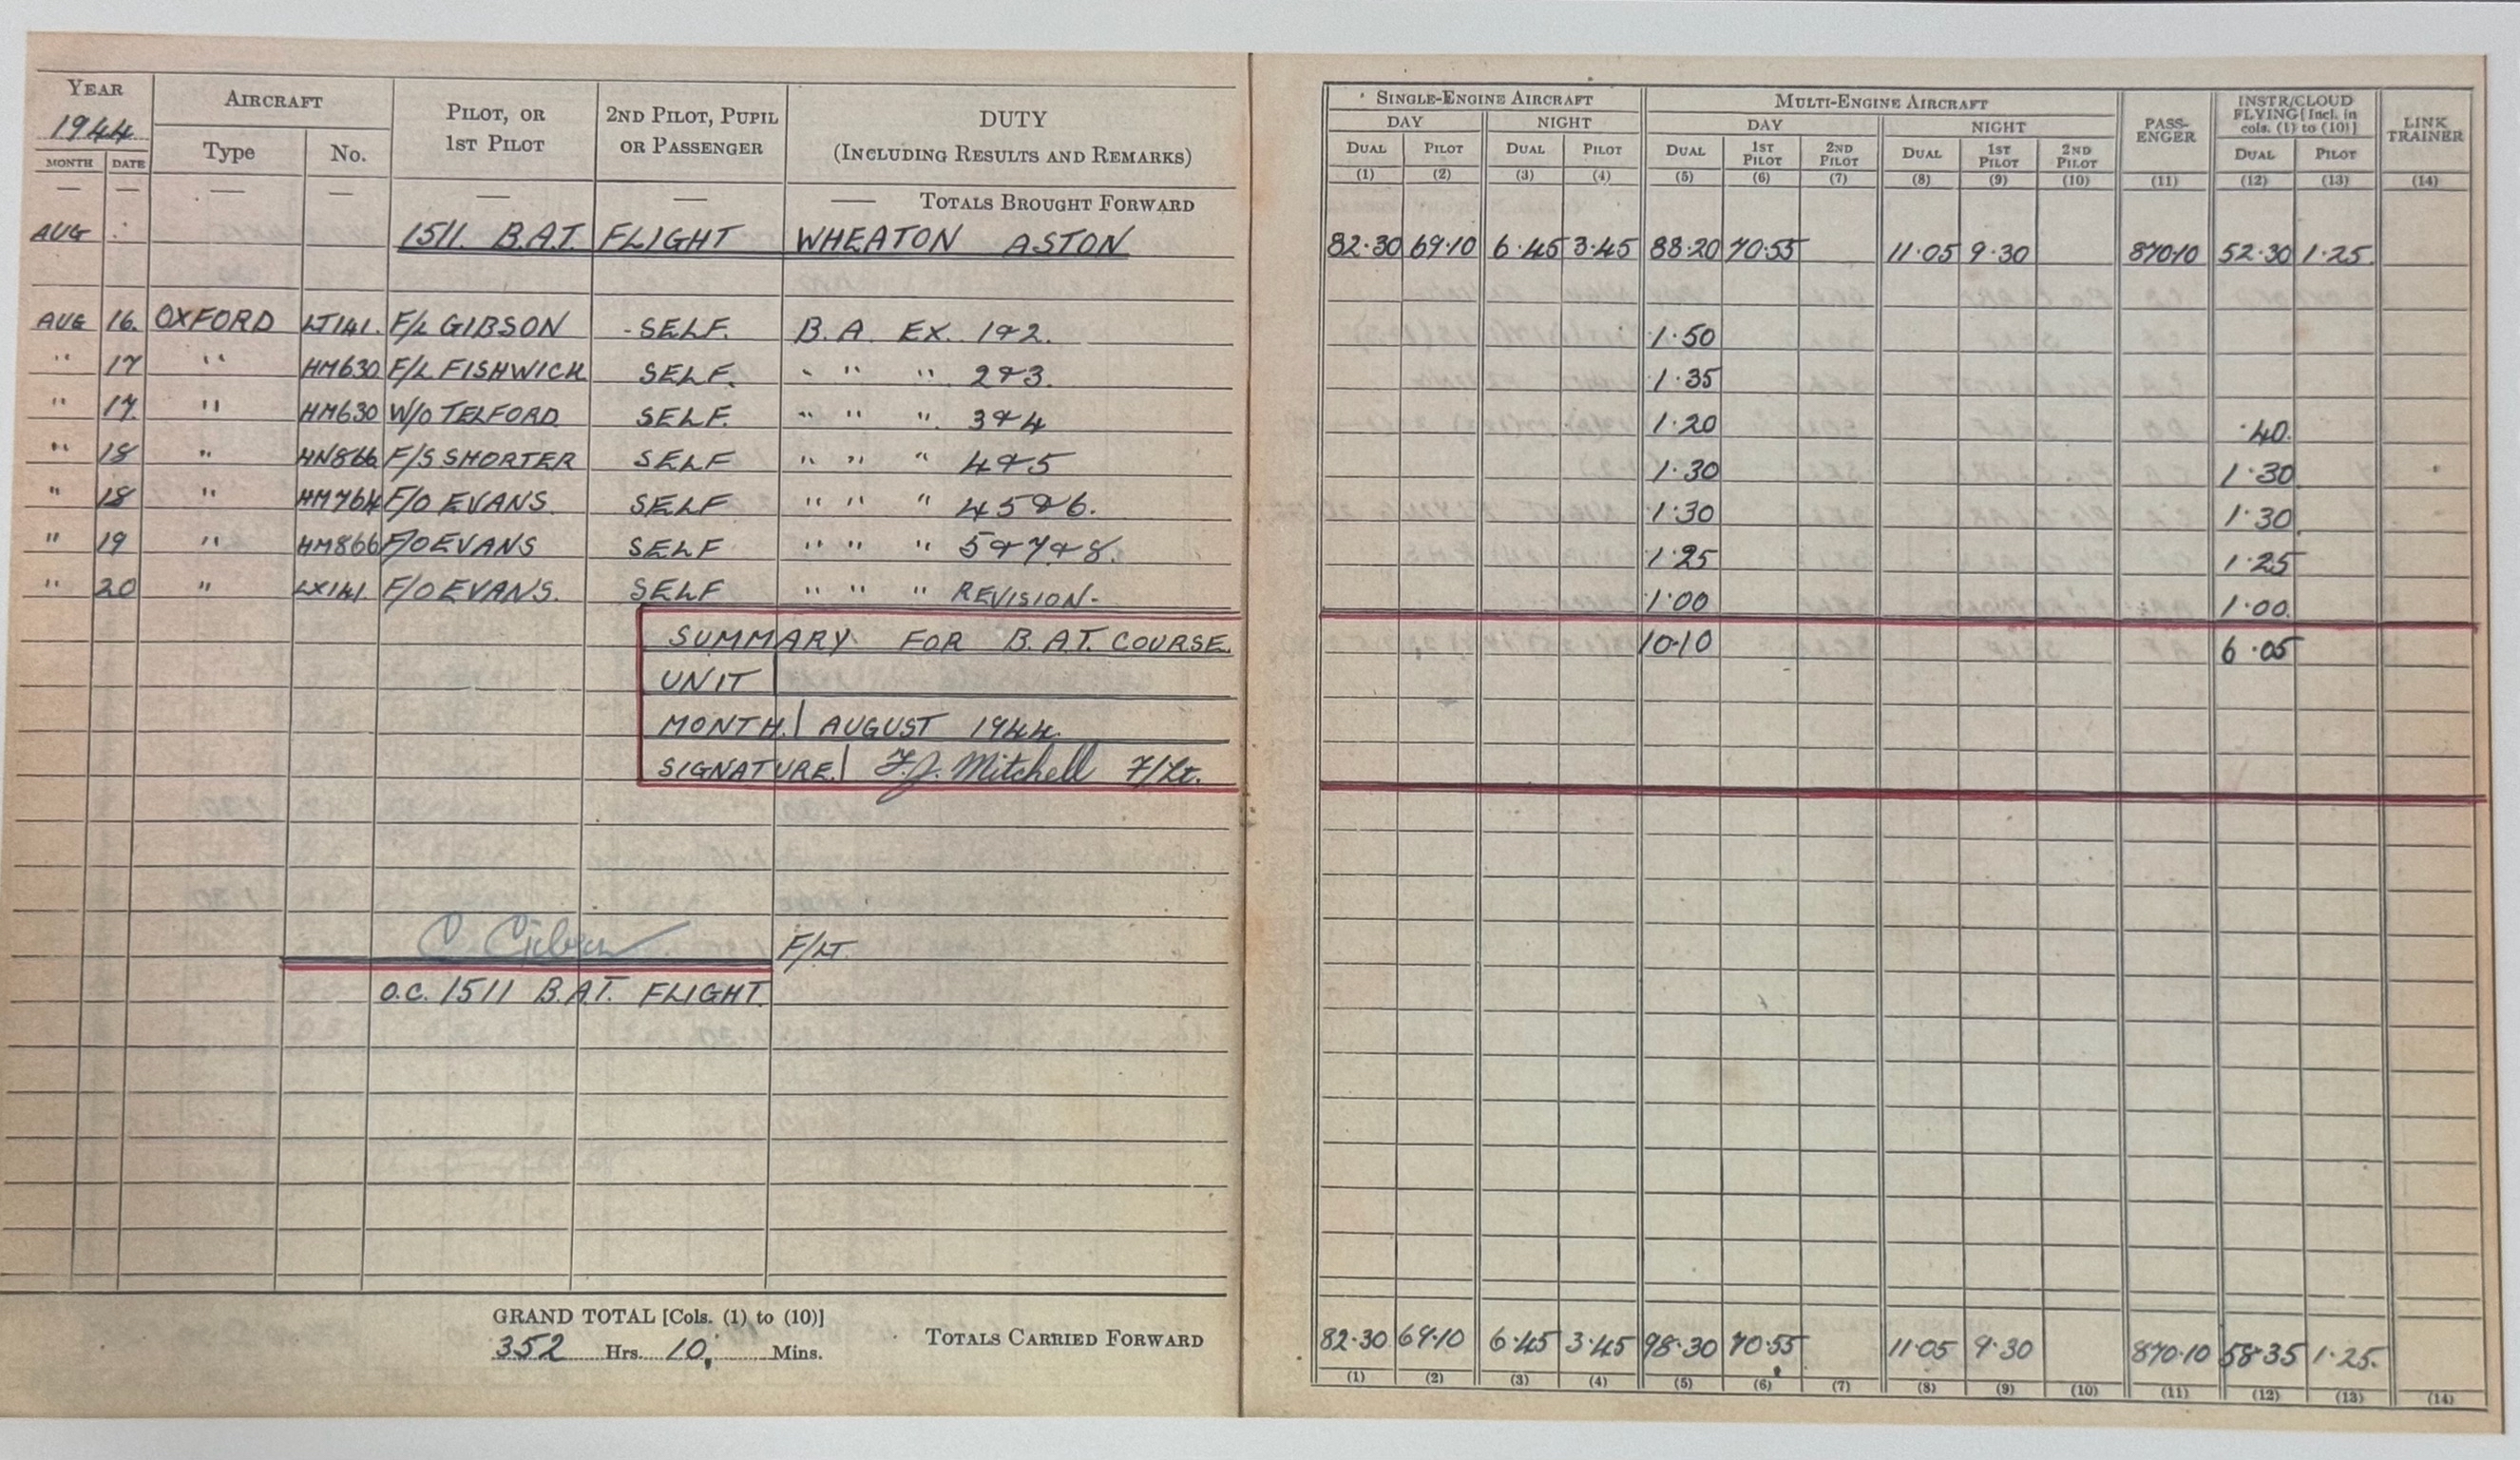 YEAR AIRCRAFT PILOT, OR 1ST PILOT 2ND PILOT, PUPIL OR PASSENGER DUTY (INCLUDING RESULTS AND REMARKS) SINGLE-ENGINE AIRCRAFT MULTI-ENGINE AIRCRAFT PASSENGER INSTR/CLOUD FLYING [Incl. in cols. (1) to (10)] LINK TRAINER
1944 DAY NIGHT DAY NIGHT
MONTH DATE Type No. DUAL PILOT DUAL PILOT DUAL 1ST PILOT 2ND PILOT DUAL 1ST PILOT 2ND PILOT DUAL PILOT
(1) (2) (3) (4) (5) (6) (7) (8) (9) (10) (11) (12) (13) (14)
— — — — — — — TOTALS BROUGHT FORWARD
AUG 1511. B.A.T. FLIGHT WHEATON ASTON 82.30 69.10 6.45 3.45 88.20 70.55 11.05 9.30 870.10 52.30 1.25
AUG 16. OXFORD LJ141. F/L GIBSON - SELF. B.A. EX. 1&2. 1.50
" 17 " HM630 F/L FISHWICK SELF. " " 2&3. 1.35
" 17. " HM630 W/O TELFORD SELF. " " " 3&4 1.20 .40.
" 18 " HN866 F/S SHORTER SELF " " " 4&5 1.30 1.30
" 18 " HM764 F/O EVANS. SELF " " " 4 5&6. 1.30 1.30
" 19 " HM866 F/O EVANS SELF " " " 5&7&8. 1.25 1.25
" 20 " LX141. F/O EVANS. SELF " " " REVISION- 1.00 1.00.
SUMMARY FOR B.A.T. COURSE. 10.10 6.05
UNIT
MONTH. AUGUST 1944.
SIGNATURE. F.J. Mitchell F/Lt.
F/LT.
O.C. 1511 B.A.T. FLIGHT.
GRAND TOTAL [Cols. (1) to (10)]
352 Hrs. 10, Mins. TOTALS CARRIED FORWARD 82.30 69.10 6.45 3.45 98.30 70.55 11.05 9.30 870.10 58.35 1.25.
(1) (2) (3) (4) (5) (6) (7) (8) (9) (10) (11) (12) (13) (14)